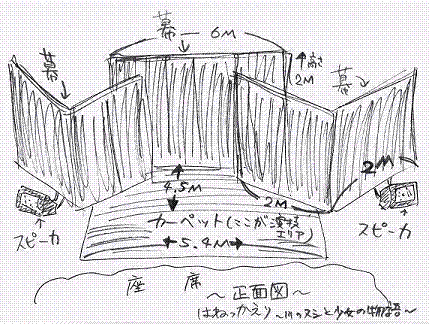 幕
6M
幕
高さ
2M
幕
4.5M
2M
2M
カーペット(ここが演技
エリア)
5.4M
スピーカ
スピーカ
座 席
~正面図~
はねっかえり
少女の物語~